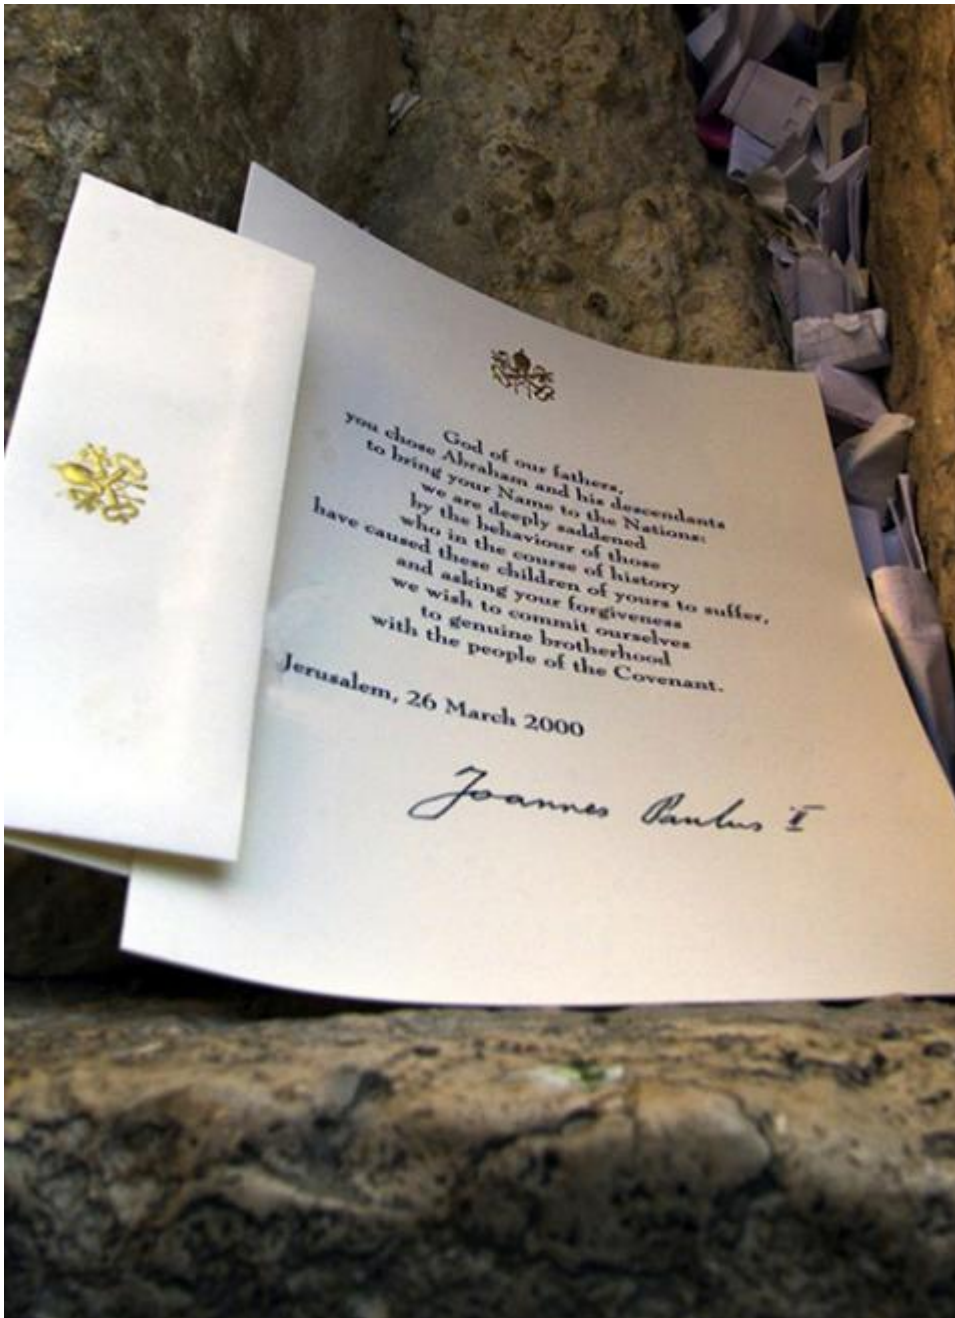 God of our fathers,
you chose Abraham and his descendants
to bring your Name to the Nations:
we are deeply saddened
by the behaviour of those
who in the course of history
have caused these children of yours to suffer,
and asking your forgiveness
we wish to commit ourselves
to genuine brotherhood
with the people of the Covenant.
Jerusalem, 26 March 2000
Joannes Paulus II